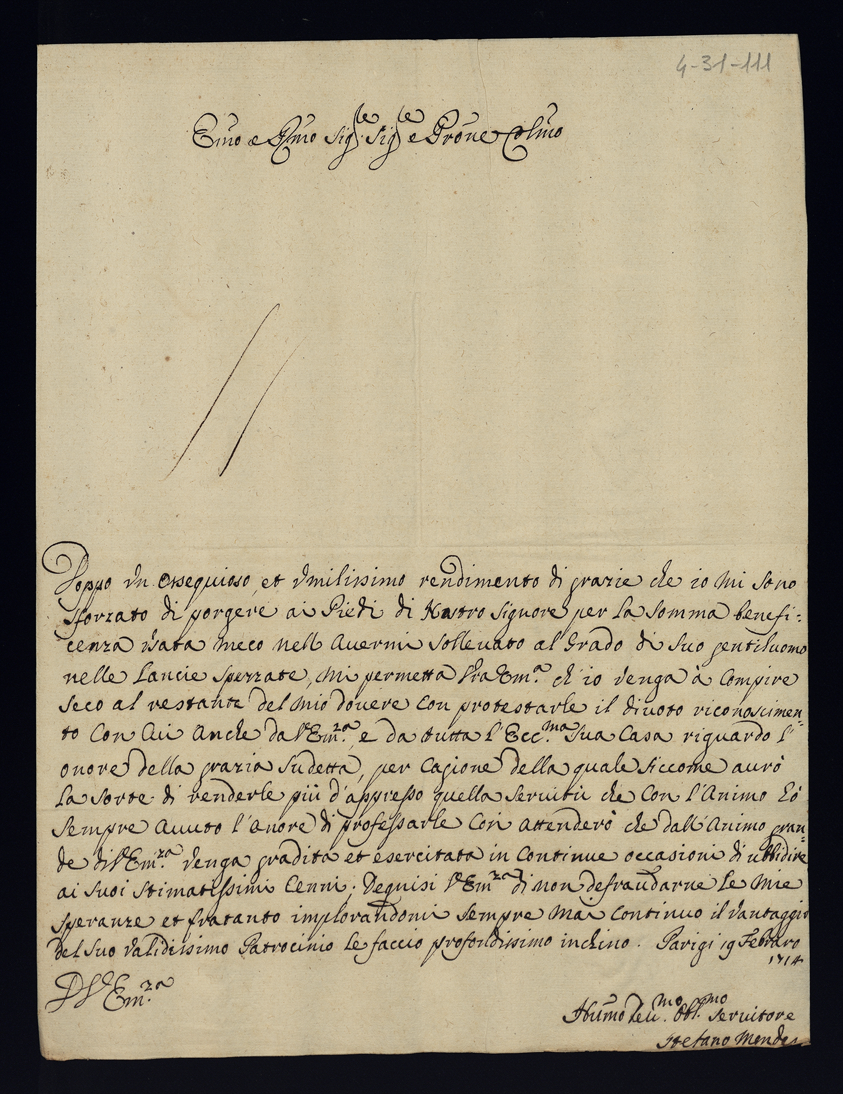 4-31-111
Emo e Rmo Sig.re Sig.re e Prone Colmo
Doppo un ossequioso, et umilissimo rendimento di grazie che io mi sono
sforzato di porgere ai Piedi di Nostro Signore per la somma benefi:
cenza usata meco nell avermi sollevato al grado di suo gentiluomo
nelle Lancie spezzate, mi permetta Vra Em.a ch'io venga à compire
seco al restante del mio dovere con protestarle il divoto riconoscimen
to con cui anche da V.Em.za, e da tutta l'Ecc.ma sua Casa riguardo l'
onore della grazia sudetta, per cagione della quale siccome avrò
la sorte di renderle più d'appresso quella servitù che con l'animo hò
sempre avuto l'onore di professarle così attenderò che dall'animo gran:
de di V.Em.za venga gradita et esercitata in continue occasioni di ubbidire
ai suoi stimatissimi cenni; Degnisi V.Em.za di non defraudarne le mie
speranze et fratanto implorandomi sempre mai continuo il vantaggio
del suo validissimo Patrocinio le faccio profondissimo inchino. Parigi 19 Febraro
1714
D V. Em.za
Humo Dev.mo Obl.mo servitore
Stefano